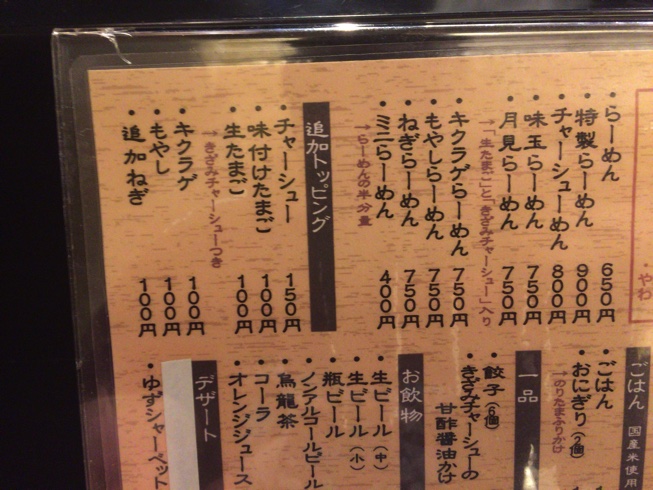 ・やわ
・らーめん 650円
・特製らーめん 900円
・チャーシューめん 800円
・味玉らーめん 750円
・月見らーめん 750円
→「生たまご」と「きざみチャーシュー」入り
・キクラゲらーめん 750円
・もやしらーめん 750円
・ねぎらーめん 750円
・ミニらーめん 400円
→らーめんの半分量
追加トッピング
・チャーシュー 150円
・味付けたまご 100円
・生たまご 100円
→きざみチャーシューつき
・キクラゲ 100円
・もやし 100円
・追加ねぎ 100円
ごはん 国産米使用
・ごはん
・おにぎり(2個)
→のりたまふりかけ
一品
・餃子(6個)
・きざみチャーシューの
甘酢醤油かけ
お飲物
・生ビール(中)
・生ビール(小)
・瓶ビール
・ノンアルコールビール
・烏龍茶
・コーラ
・オレンジジュース
デザート
・ゆずシャーベット